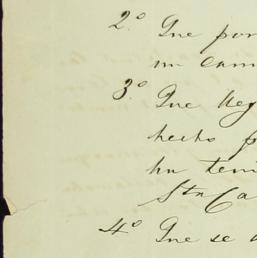 2º Que por
un cam
3º Que lleg
hecho p
ha teni
Sta Ca
4º Que se